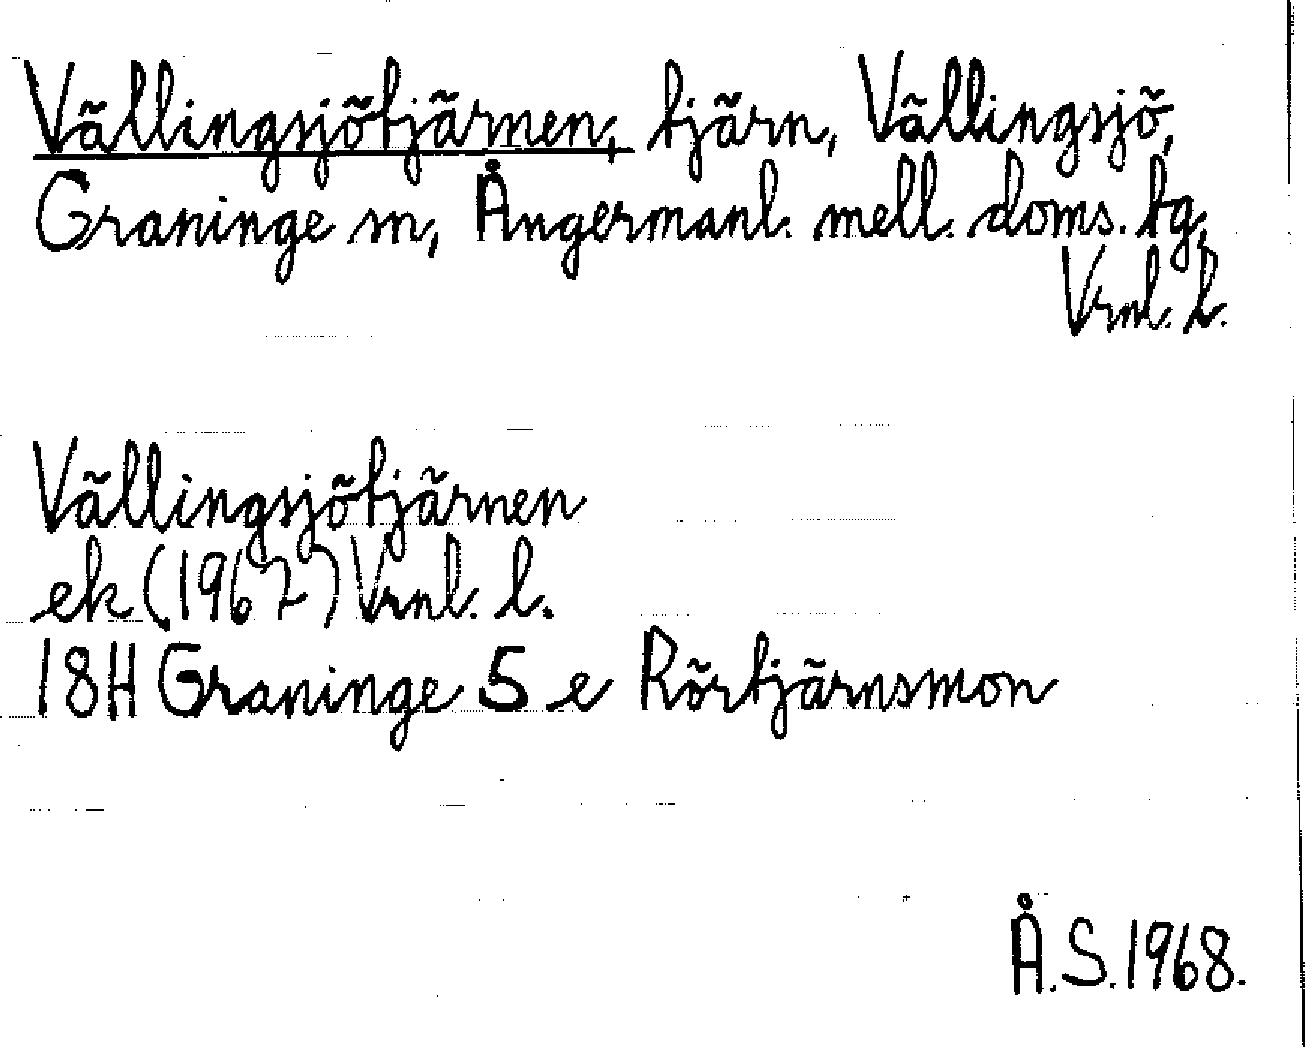 Vällingsjötjärnen, tjärn, Vällingsjö,
Graninge sn, Ångermanl. mell. doms. tg,
Vrnl. l.
Vällingsjötjärnen
ek (1967) Vrnl. l.
18H Graninge 5 e Rörtjärnsmon
Å.S. 1968.